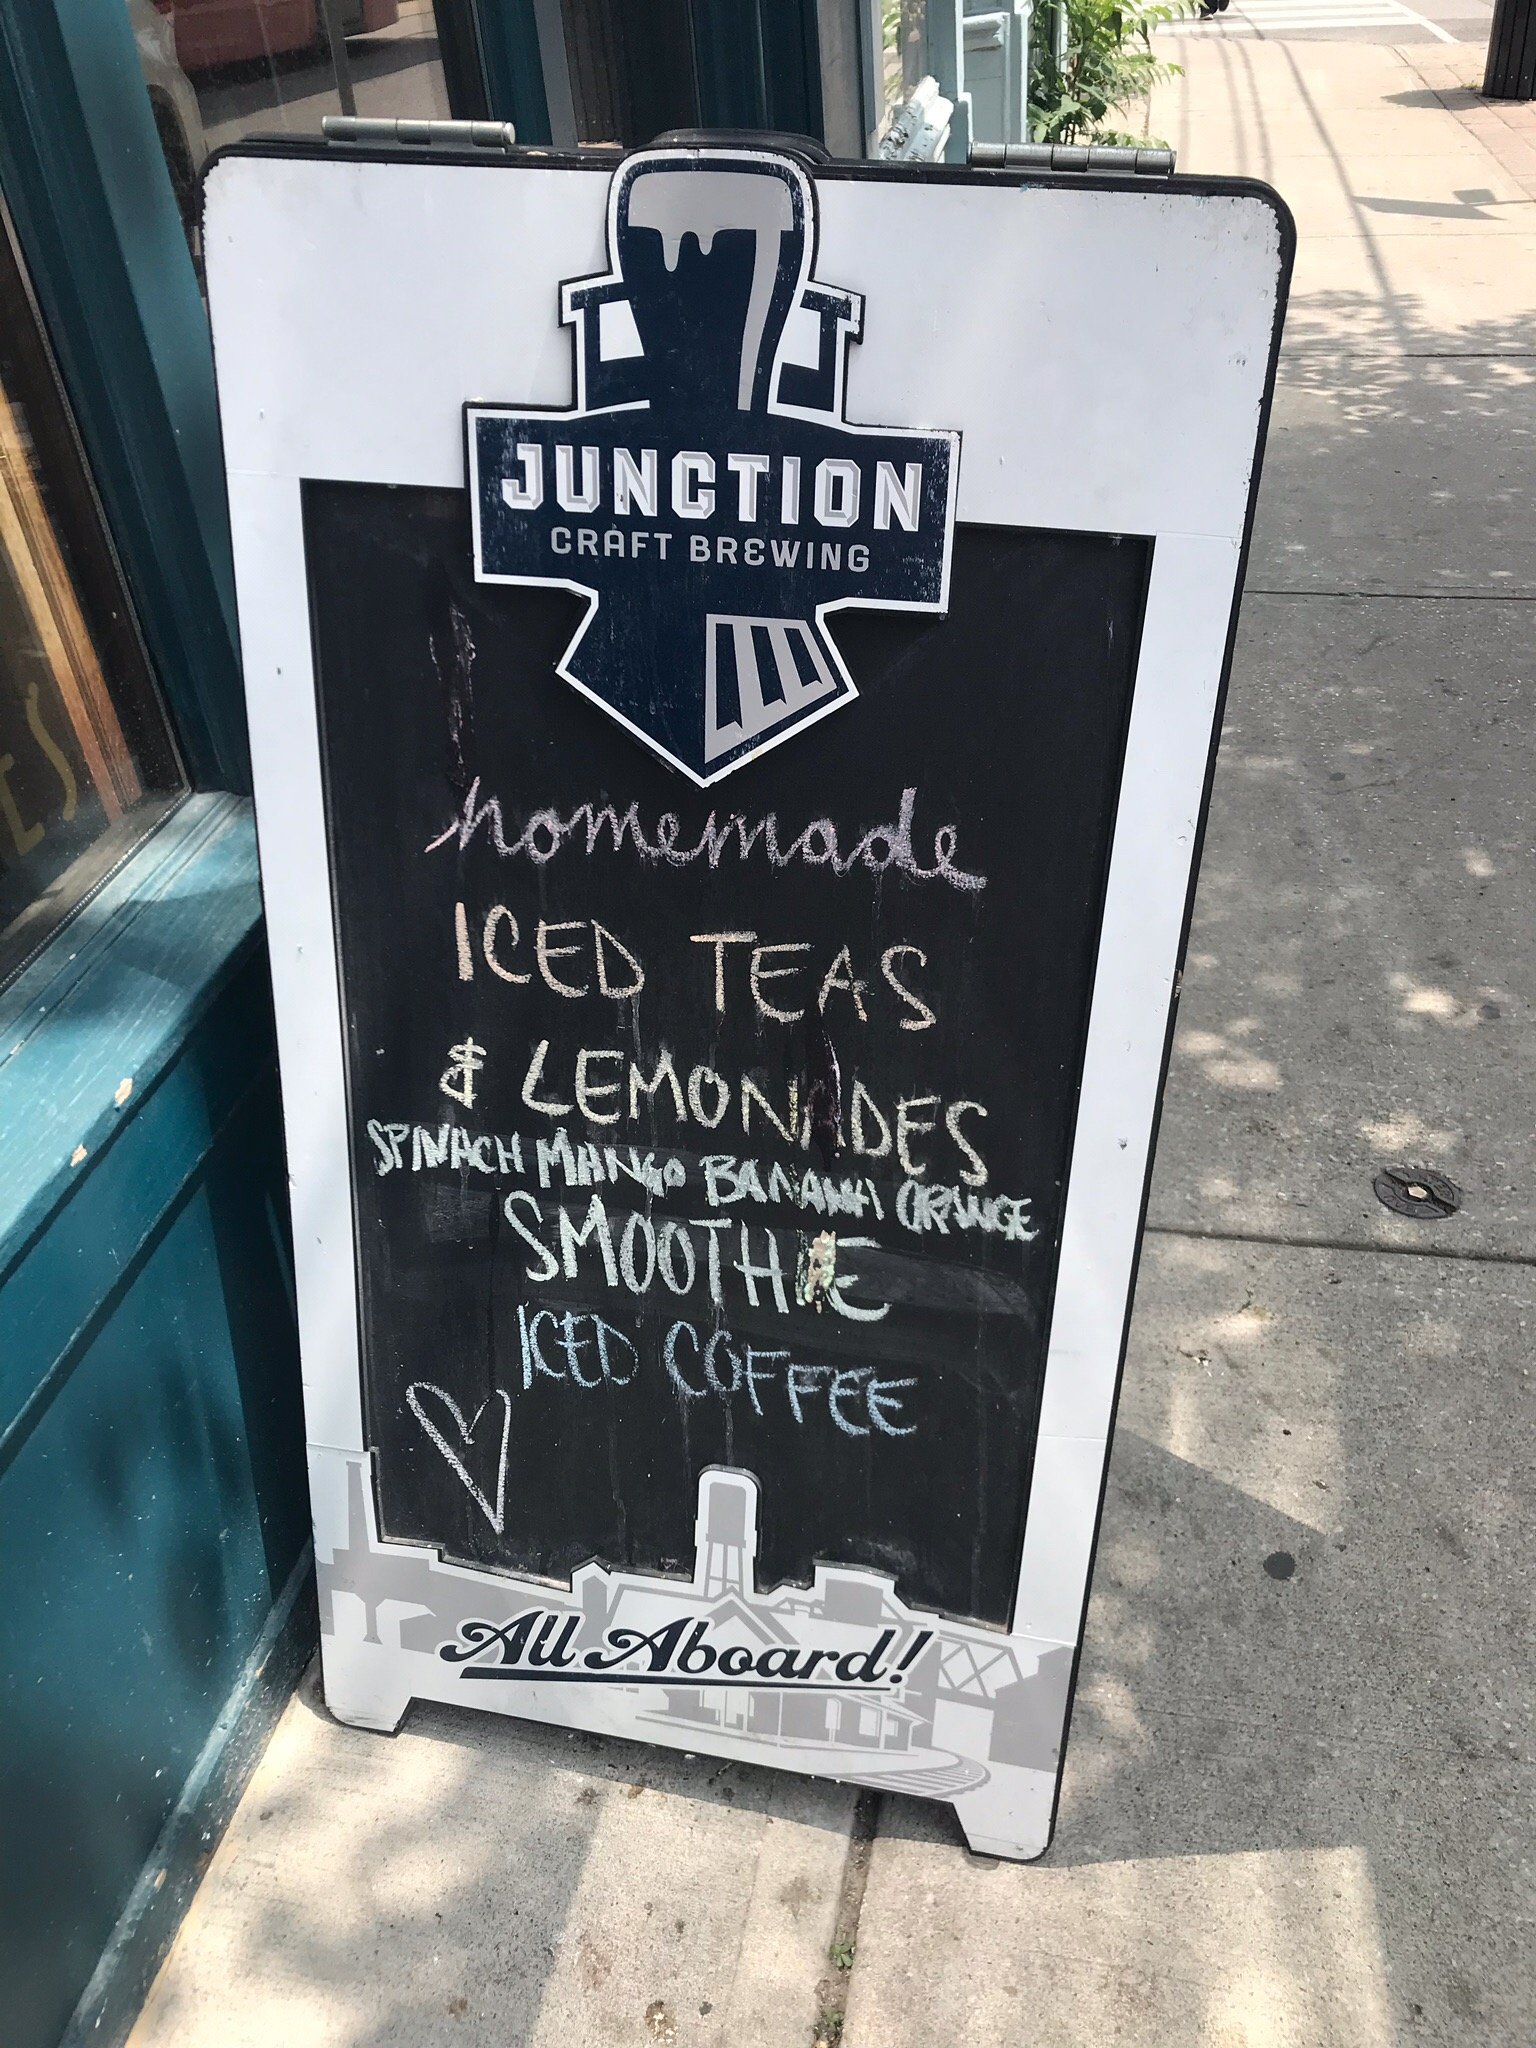 JUNCTION
CRAFT BREWING
homemade
ICED TEAS
& LEMONADES
SPINACH MANGO BANANA ORANGE
SMOOTHIE
ICED COFFEE
All Aboard!